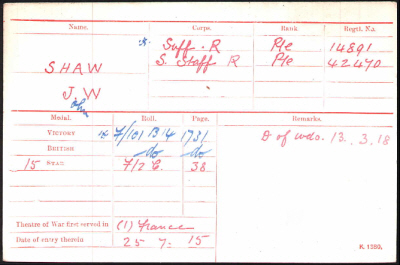 Name. Corps. Rank Regtl. No.
* Suff. R Pte 14891
SHAW S. Staff R Pte 42470
J. W
John
Medal. Roll. Page. Remarks.
VICTORY * F/101 B14 1731 D of wds. 13. 3. 18
BRITISH do do
15 STAR F/2 C. 38
Theatre of War first served in (1) France
Date of entry therein 25. 7. 15
K. 1380.